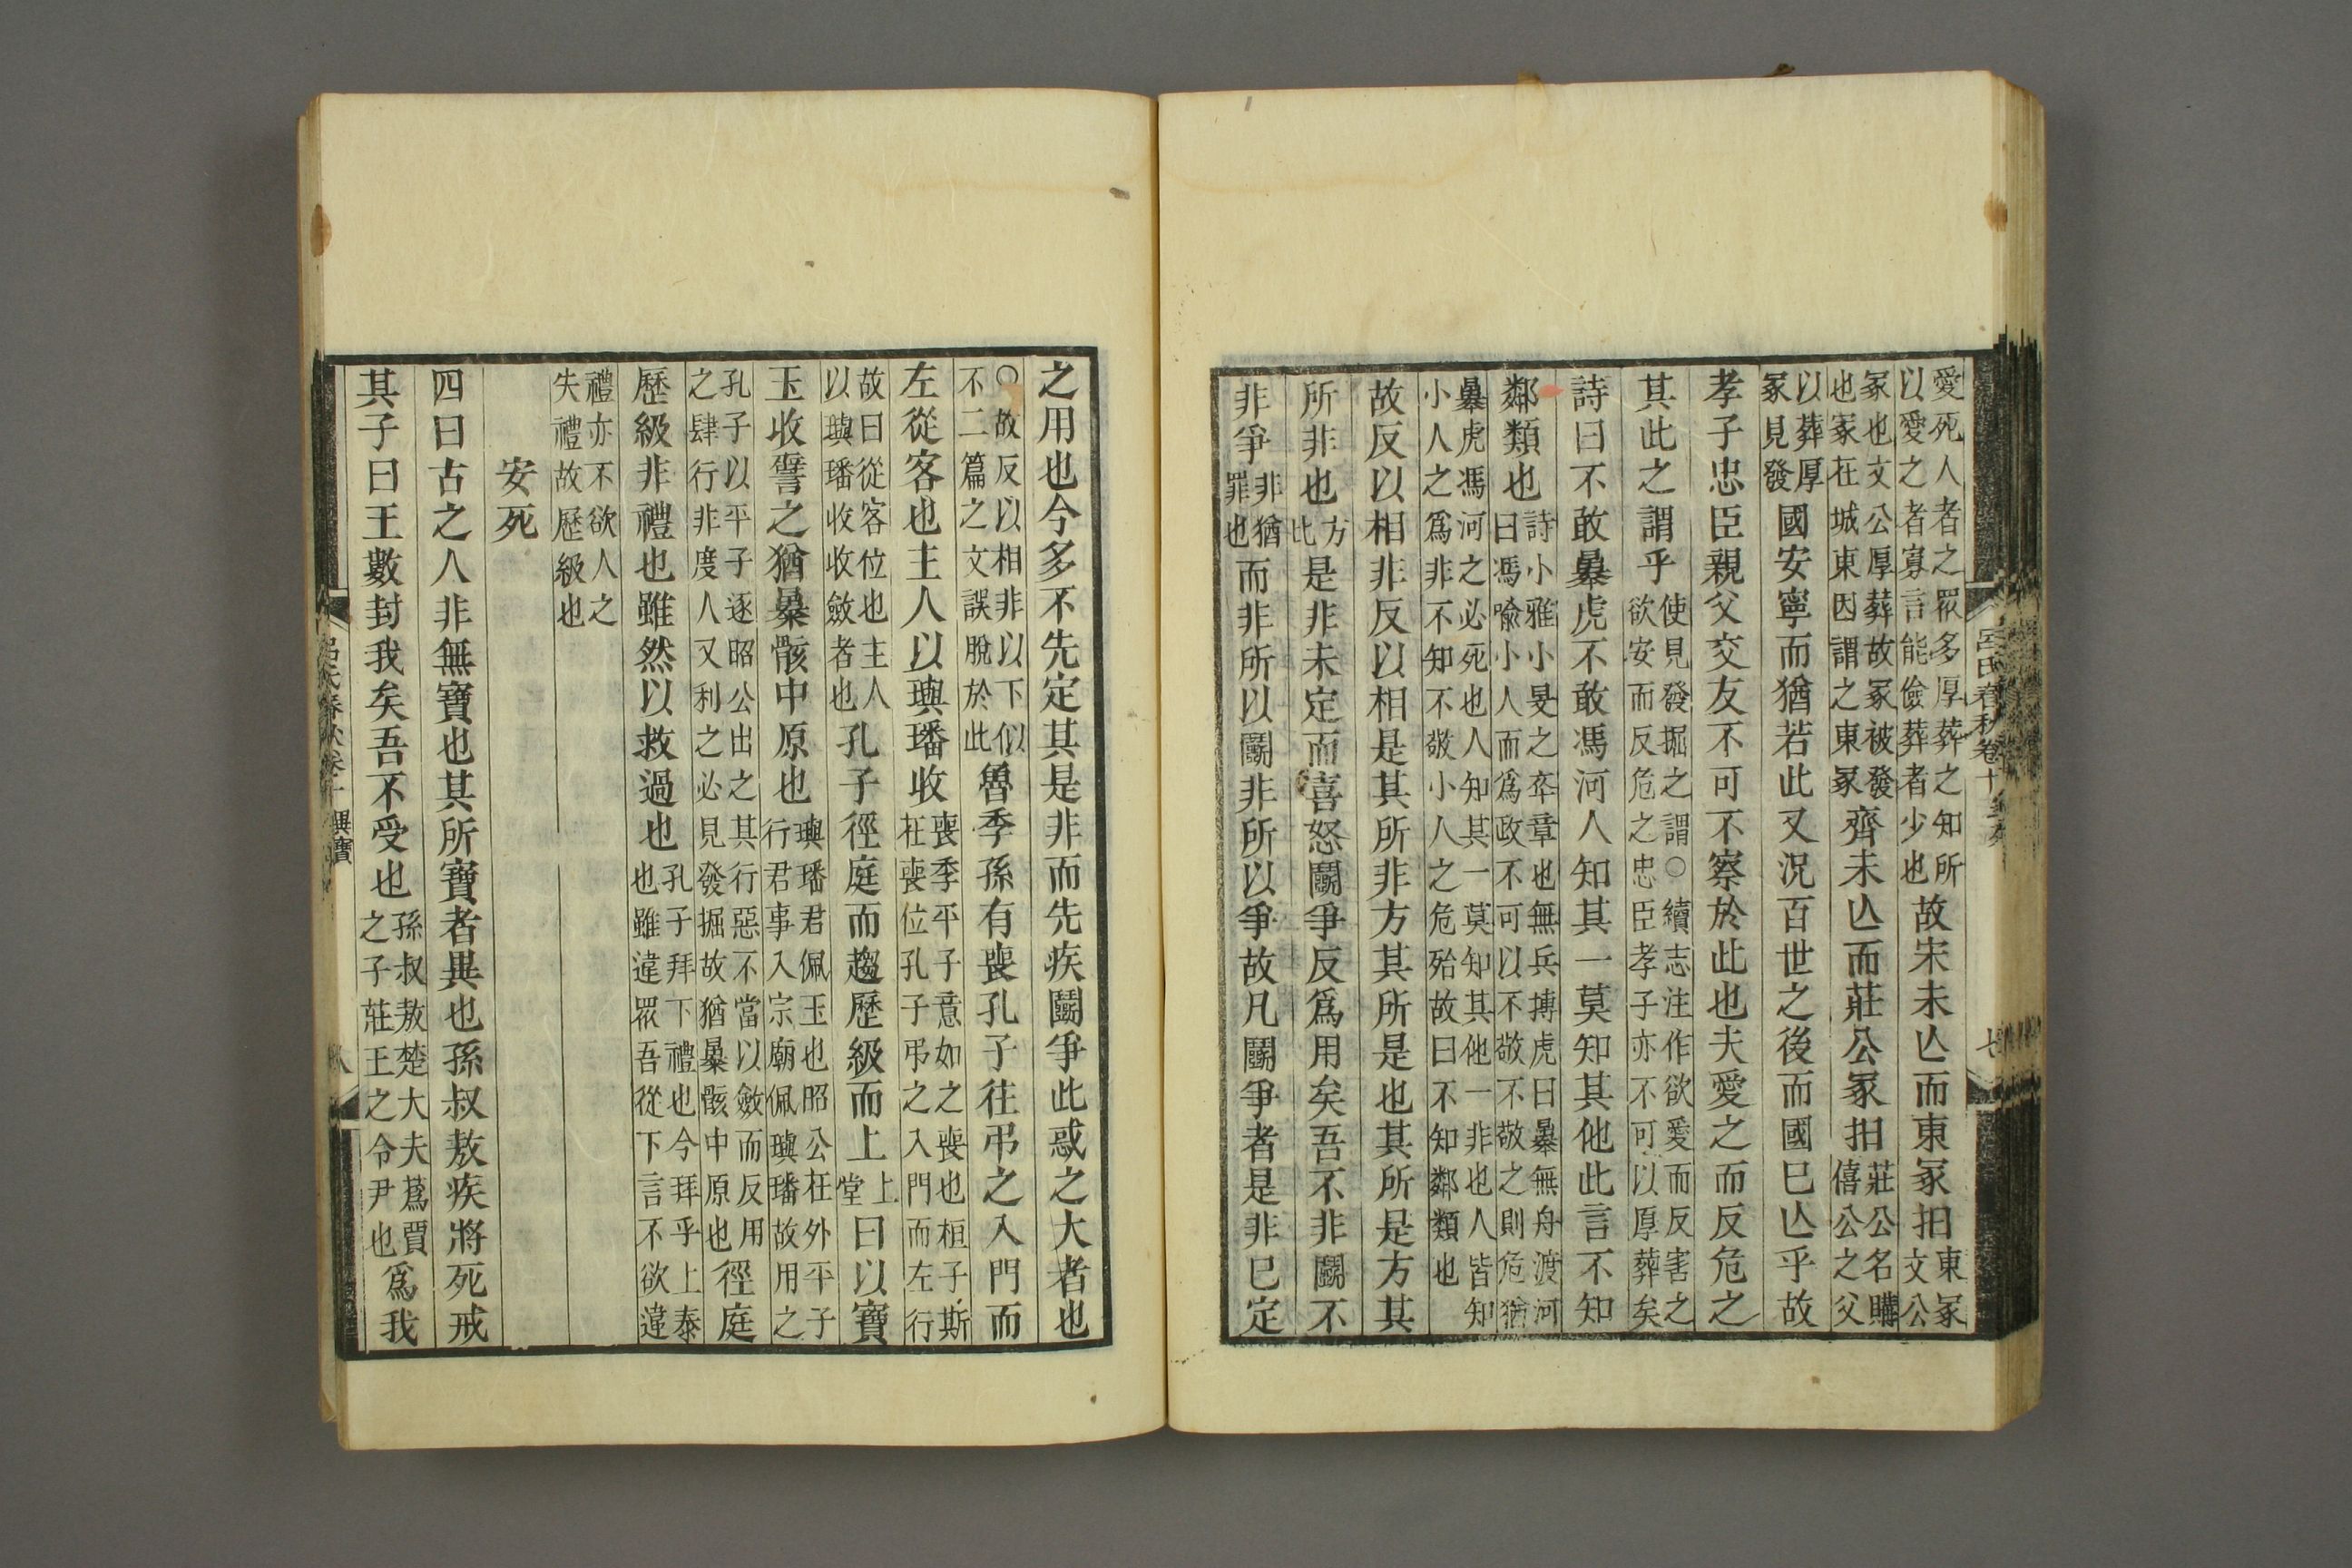 愛死人者之眾多厚葬之知所以愛之者寡言能儉葬者少也故宋未亾而東冢抇東冢文公
冢也文公厚葬故冢被發也冢在城東因謂之東冢齊未亾而莊公冢抇莊公名購僖公之父
以葬厚冢見發國安寧而猶若此又況百世之後而國已亾乎故
孝子忠臣親父交友不可不察於此也夫愛之而反危之
其此之謂乎使見發掘之謂○續志注作欲愛而反害之欲安而反危之忠臣孝子亦不可以厚葬矣
詩曰不敢暴虎不敢馮河人知其一莫知其他此言不知
鄰類也詩小雅小旻之卒章也無兵搏虎曰暴無舟渡河曰馮喻小人而為政不可以不敬不敬之則危猶
暴虎馮河之必死也人知其一莫知其他一非也人皆知小人之為非不知不敬小人之危殆故曰不知鄰類也
故反以相非反以相是其所非方其所是也其所是方其
所非也方比是非未定而喜怒鬬爭反為用矣吾不非鬬不
非爭非猶罪也而非所以鬬非所以爭故凡鬬爭者是非已定
呂氏春秋卷十 七
之用也今多不先定其是非而先疾鬬爭此惑之大者也
○故反以相非以下似不二篇之文誤脫於此魯季孫有喪孔子往弔之入門而
左從客也主人以璵璠收喪季平子意如之喪也桓子斯在喪位孔子弔之入門而左行
故曰從客位也主人以璵璠收收斂者也孔子徑庭而趨歷級而上上堂曰以寶
玉收譬之猶暴骸中原也璵璠君佩玉也昭公在外平子行君事入宗廟佩璵璠故用之
孔子以平子逐昭公出之其行惡不當以斂而反用之肆行非度人又利之必見發掘故猶暴骸中原也徑庭
歷級非禮也雖然以救過也孔子拜下禮也今拜乎上泰也雖違眾吾從下言不欲違
禮亦不欲人之失禮故歷級也
安死
四曰古之人非無寶也其所寶者異也孫叔敖疾將死戒
其子曰王數封我矣吾不受也孫叔敖楚大夫蒍賈之子莊王之令尹也為我
呂氏春秋卷十 異寶 八